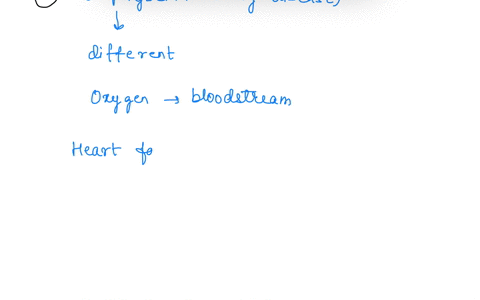 different
Oxygen → bloodstream
Heart fo